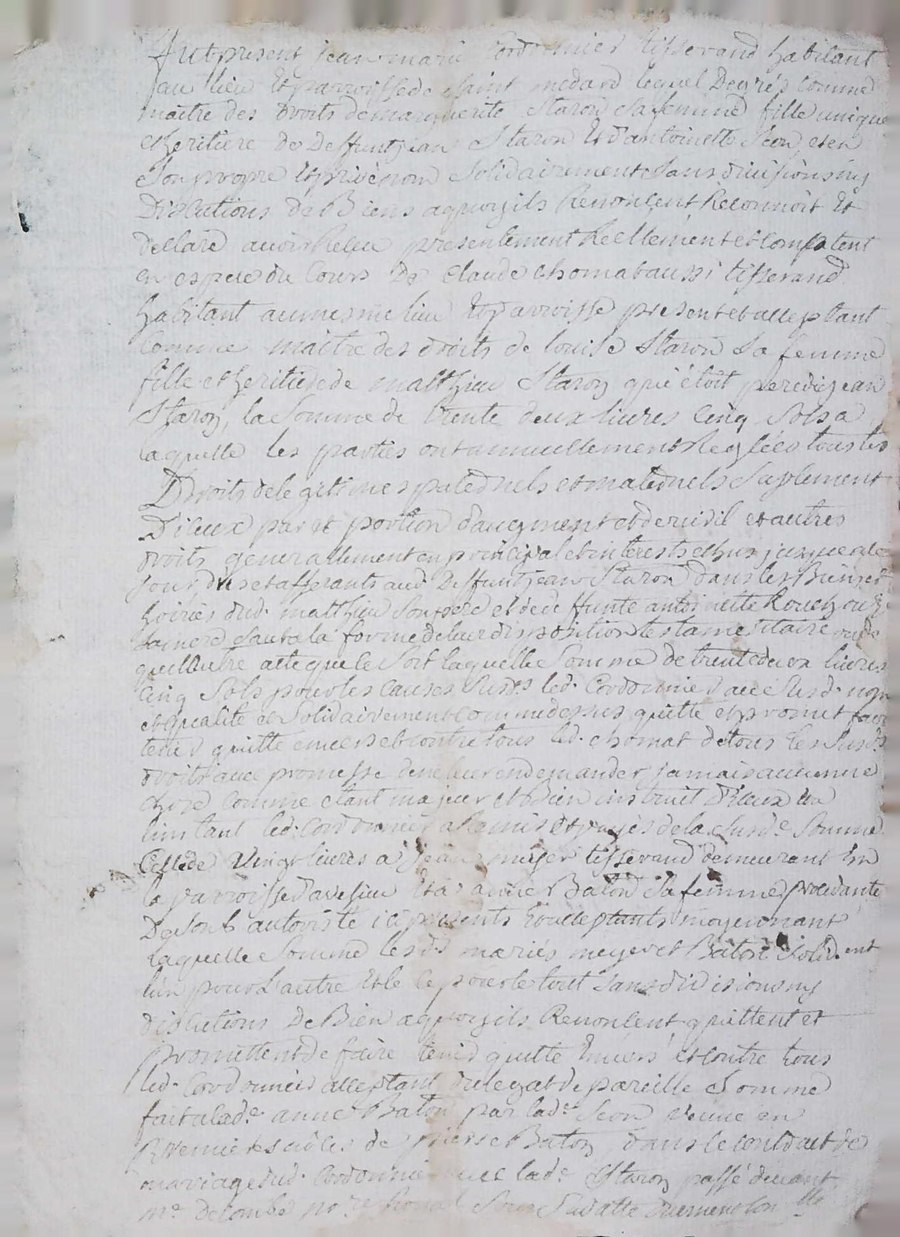 Fut present jean marie Cordonnier tisserand habitant
au lieu et parroisse de saint medard lequel Degrés comme
maitre des droits de marguerite Staron sa femme fille unique
et heritiere de Deffunt jean Staron et d'antoinette Seon et en
son propre et privé nom solidairement sans divisions ny
Discutions de Biens aquoy ils Renoncent Reconnoit et
declare avoir Recu presentement Reellement et comptent
en espece du Cours de Claude chomat aussi tisserand
habitant au mesme lieu et parroisse present et acceptant
Comme maitre des droits de louise Staron sa femme
fille et heritiere de matthieu Staron qui étoit pere dud jean
Staron, la somme de trente deux livres cinq sols a
laquelle les parties ont annuellement Reglées tous les
Droits de legitimes paternels et maternels suplement
D'iceux part et portion d'augment et de reuil et autres
droits generallement en principal et interests echus jusque a ce
jour dus et afferants aud Deffunt jean Staron dans les Biens et
hoiries dud. matthieu son pere et de deffunte antoinette Rouchouz
sa mere sauf a la forme de leur disposition testamentaire ou de
quelluatre acte que ce soit laquelle somme de trente deux livres
cinq sols pour les causes susd. led. Cordonnier aux susd. nom
et qualité et solidairement comme dessus quitte et promet faire
tenir quitte envers et contre tous led. chomat de tous les susd.
droits avec promesse de ne leur en demander jamais aucunne
chose comme etant majeur et bien instruit d'iceux et a
l'instant led. Cordonnier a Remis et payés de la susd.e somme
Celle de vingt livres a jean meyer tisserand demeurant en
la parroisse d'aveizieu et a anne Baton sa femme procedante
De son autorité ici presents et acceptants moyennant
laquelle somme lesd.s mariés meyer et Baton solid.ent
l'un pour l'autre et le c pour le tout sans divisions ny
discutions De Bien aquoy ils Renoncent quittent et
promettent de faire tenir quitte envers et contre tous
led. Cordonnier acceptant du legat de pareille somme
fait a lad.e anne Baton par lad.e Seon veuve en
premieres noces de pierre Baton dans le contract de
mariage dud. Cordonnier avec lad.e Staron passé devant
m.e delombe no.re Royal